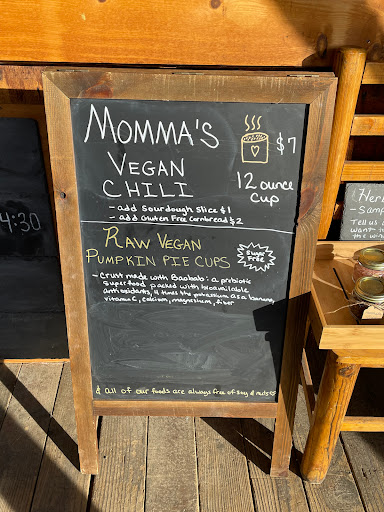 MOMMA'S
$7
VEGAN
CHILI
12 ounce
cup
- add sourdough slice $1
- add Gluten Free Cornbread $2
RAW VEGAN
PUMPKIN PIE CUPS
Sugar
Free
- Crust made with Baobab: a prebiotic
superfood packed with bioavailable
antioxidants, 4 times the potassium as a banana,
vitamin C, calcium, magnesium, fiber
& all of our foods are always free of soy & nuts
4:30
(Her
- Samp
Tell us
want
the w